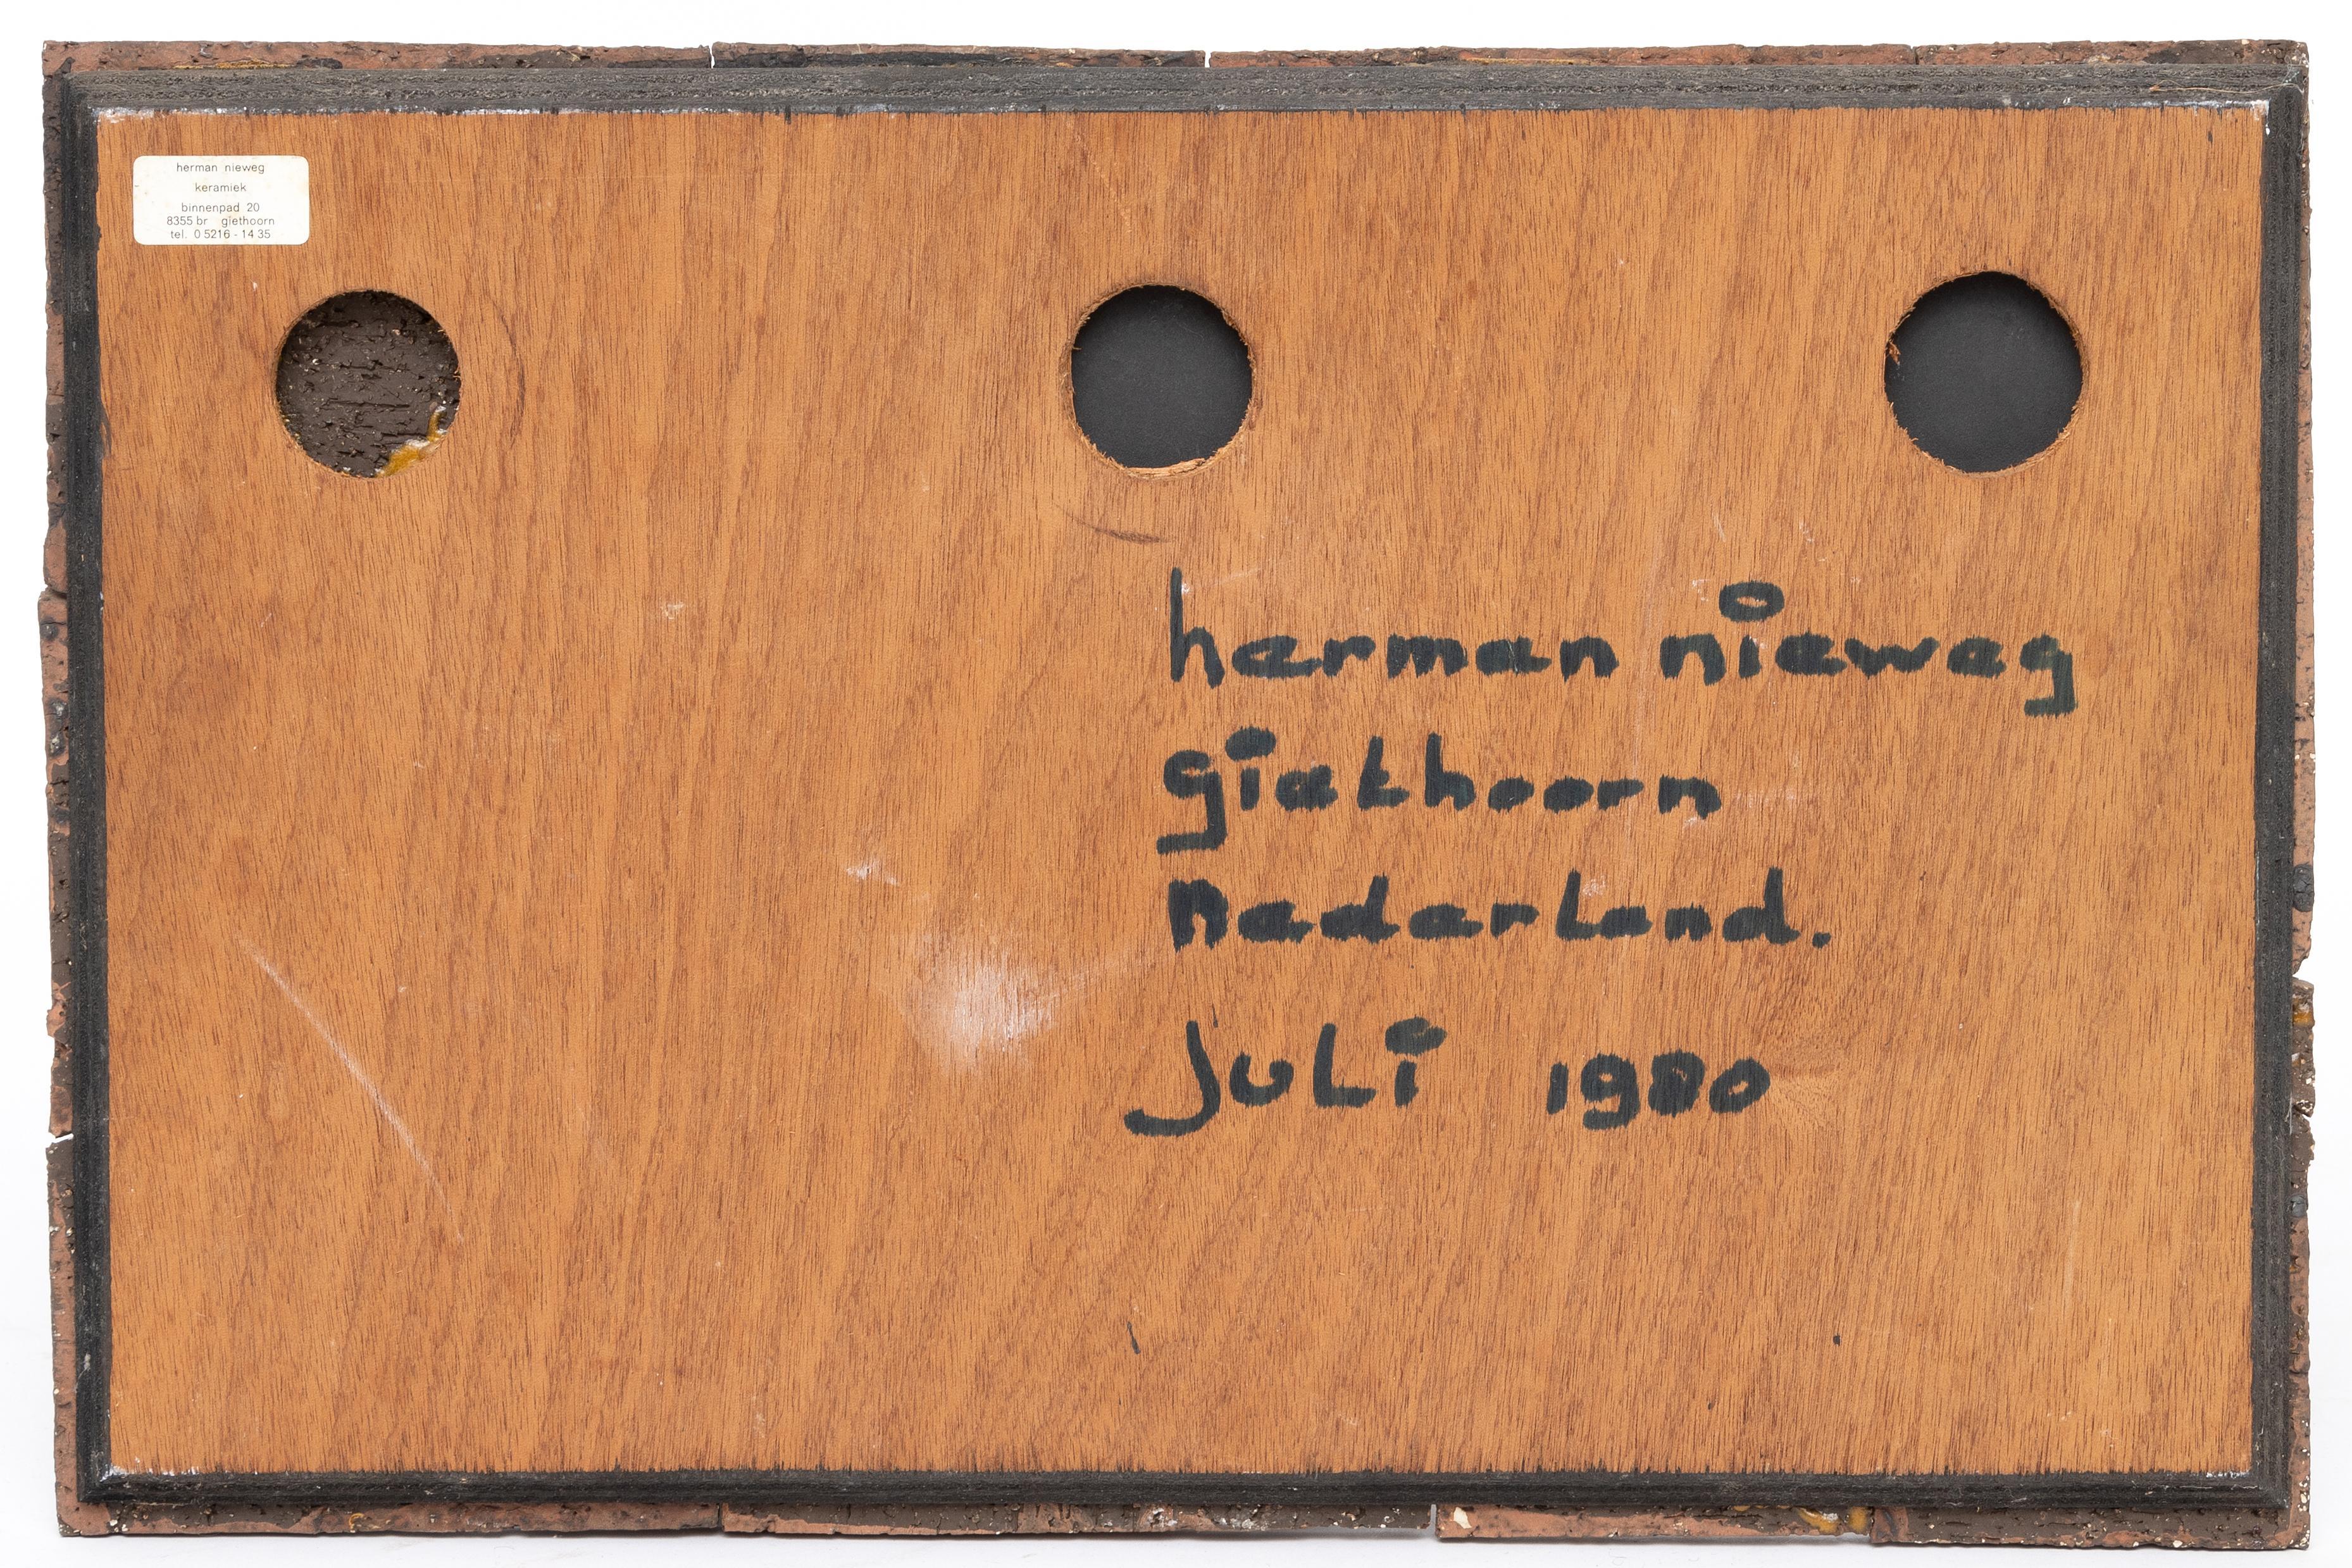 herman nieweg
keramiek
binnenpad 20
8355 br giethoorn
tel. 0 5216 - 14 35
herman nieweg
giethoorn
nederland.
juli 1980